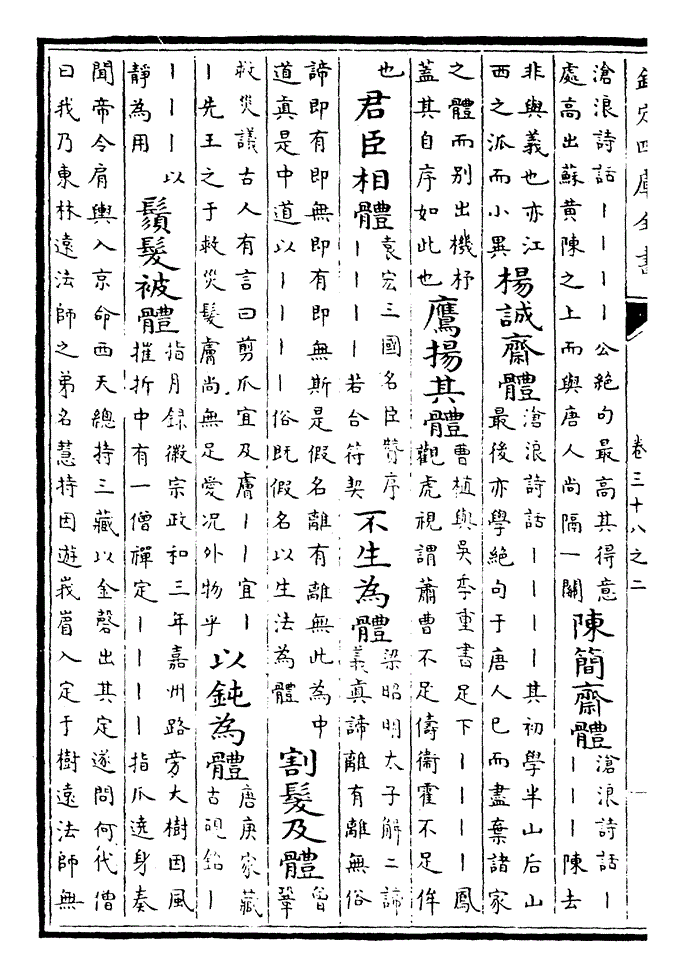 欽定四庫全書 卷三十八之二
滄浪詩話丨丨丨丨公絶句最高其得意
處高出蘇黄陳之上而與唐人尚隔一關
陳簡齋體
滄浪詩話丨
丨丨丨陳去
非與義也亦江
西之派而小異
楊誠齋體
滄浪詩話丨丨丨丨其初學半山后山
最後亦學絶句于唐人已而盡棄諸家
之體而别出機杼
蓋其自序如此也
鷹揚其體
曹植與吳季重書足下丨丨丨丨鳳
觀虎視謂蕭曹不足儔衞霍不足侔
也
君臣相體
袁宏三國名臣贊序
丨丨丨丨若合符契
不生為體
梁昭明太子解二諦
義真諦離有離無俗
諦即有即無即有即無斯是假名離有離無此為中
道真是中道以丨丨丨丨俗既假名以生法為體
割髮及體
曾
鞏
救災議古人有言曰剪爪宜及膚丨丨宜丨
丨先王之于救災髮膚尚無足愛况外物乎
以鈍為體
唐庚家藏
古硯銘丨
丨丨丨以
靜為用
鬚髮被體
指月録徽宗政和三年嘉州路旁大樹因風
摧折中有一僧禪定丨丨丨丨指爪遶身奏
聞帝令肩輿入京命西天總持三藏以金磬出其定遂問何代僧
曰我乃東林遠法師之弟名慧持因遊峩嵋入定于樹遠法師無